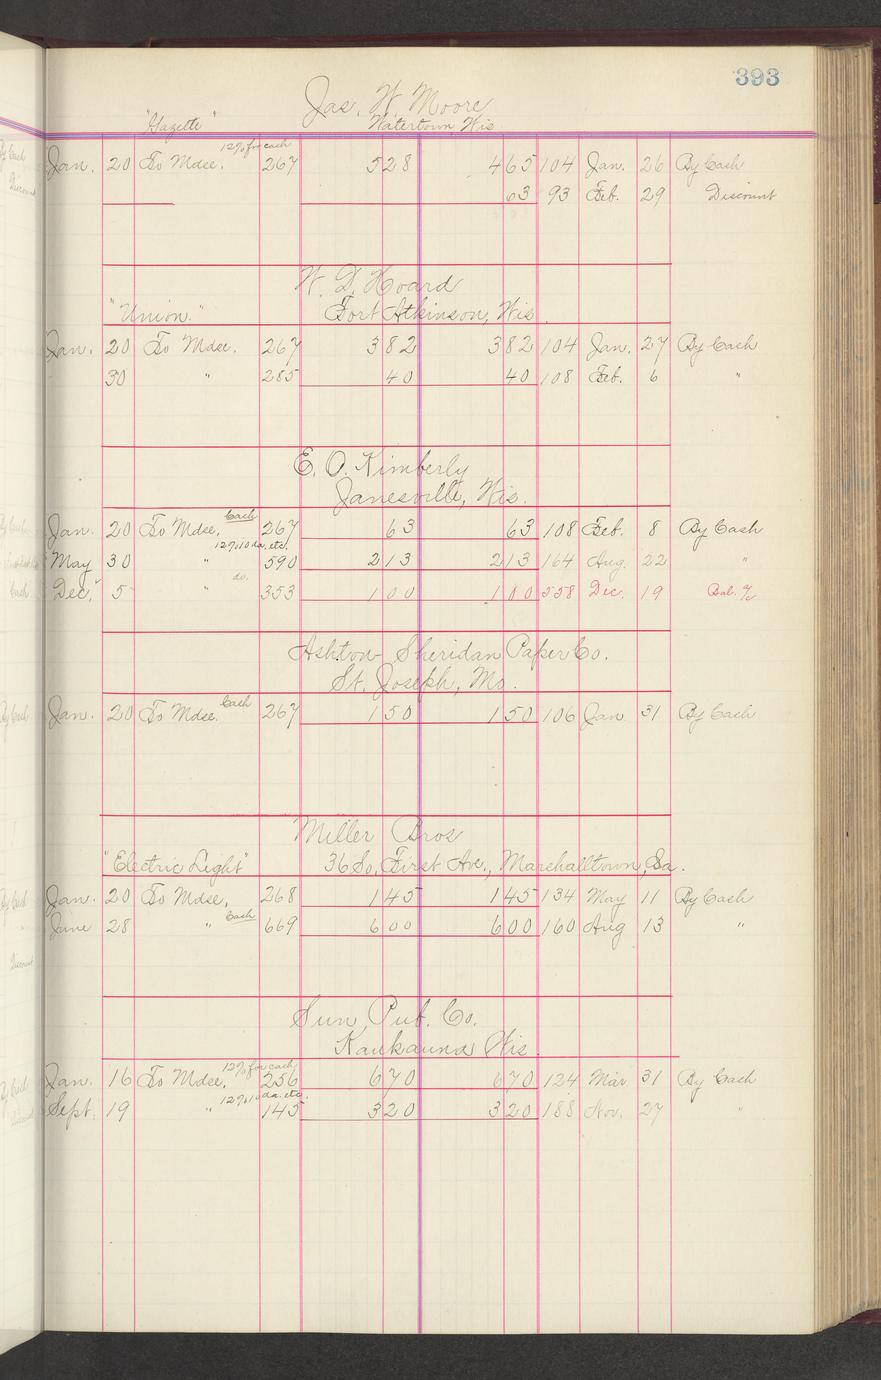 393
Jas. W. Moore
"Gazette" Watertown Wis
12% for cash
Jan. 20 To Mdse. 267 528 465 104 Jan. 26 By Cash
63 93 Feb. 29 Discount
W. D. Hoard
"Union." Fort Atkinson, Wis.
Jan. 20 To Mdse. 267 382 382 104 Jan. 27 By Cash
30 " 285 40 40 108 Feb. 6 "
E. O. Kimberly
Janesville, Wis.
Jan. 20 To Mdse, Cash 267 63 63 108 Feb. 8 By Cash
12% 10 da. etc.
May 30 " 590 213 213 164 Aug. 22 "
do.
Dec. 5 " 353 100 100 558 Dec. 19 Bal. %
Ashton Sheridan Paper Co.
St. Joseph, Mo.
Jan. 20 To Mdse. Cash 267 150 150 106 Jan 31 By Cash
Miller Bros
"Electric Light" 36 So. First Ave., Marshalltown, Ia.
Jan. 20 To Mdse, 268 145 145 134 May 11 By Cash
June 28 " Cash 669 600 600 160 Aug 13 "
Sun Pub. Co.
Kaukauna Wis.
12% for cash
Jan. 16 To Mdse, 256 670 670 124 Mar 31 By Cash
12% 10 da. etc.
Sept. 19 " 145 320 320 188 Nov. 27 "